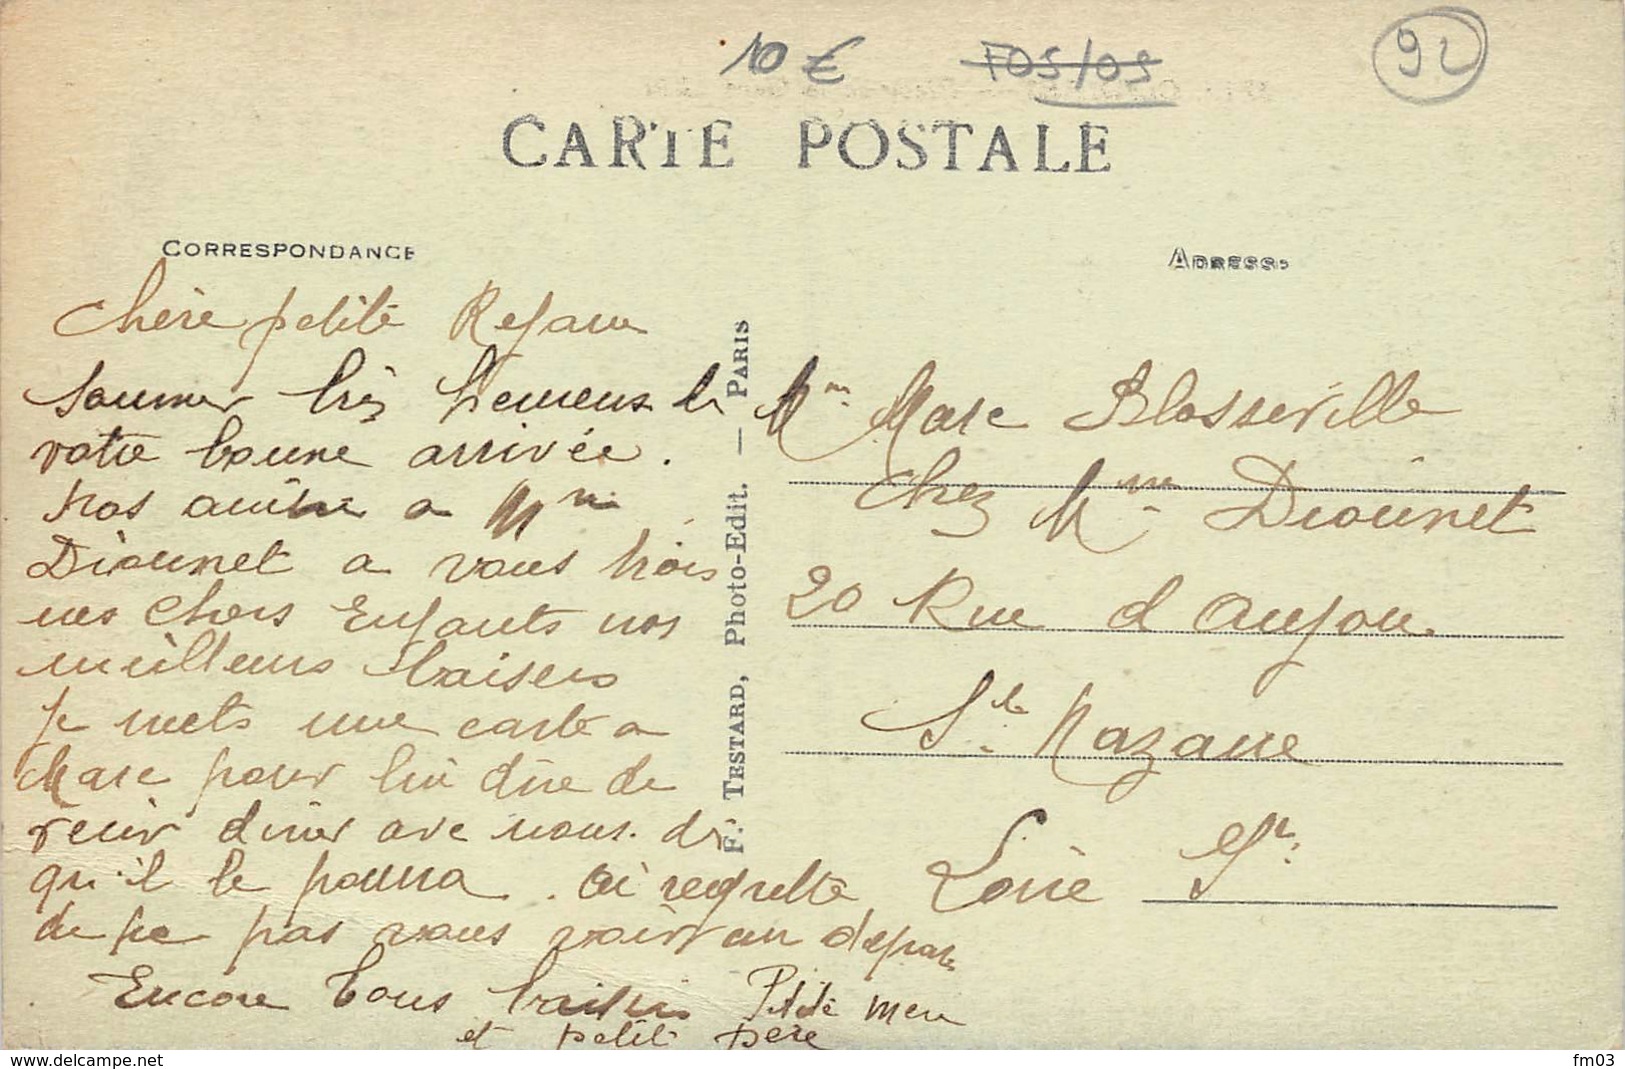 10 €
FOS/OS
92
CARTE POSTALE
CORRESPONDANCE
ADRESSE
Chère petite
sommes très heureux de
votre bonne arrivée.
nos amitié a Mme
Diounet a vous trois
mes chers Enfants nos
meilleurs baisers
je mets une carte a
Marc pour lui dire de
venir diner avec nous. dès
qu'il le pourra. Ai regrette
de ne pas vous voir au depart
Encore bons baisers Petite mere
et petit père
F. TESTARD, Photo-Edit. — PARIS
Mme Marc Blosseville
chez Mme Diounet
20 Rue d Anjou
St Nazaire
Loire Inf
delcampe.net
fm03